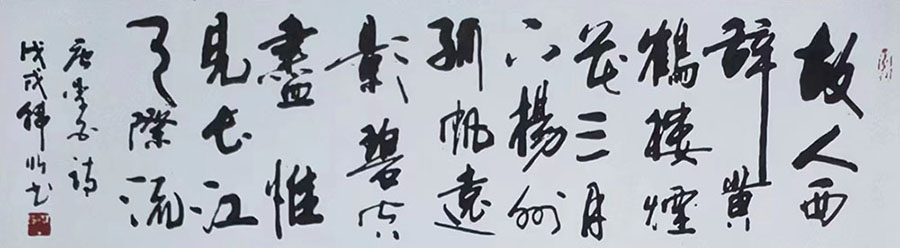 故人西
辭黃
鶴樓煙
花三月
下楊州
孤帆遠
影碧空
盡惟
見長江
天際流
唐李白詩
戊戌